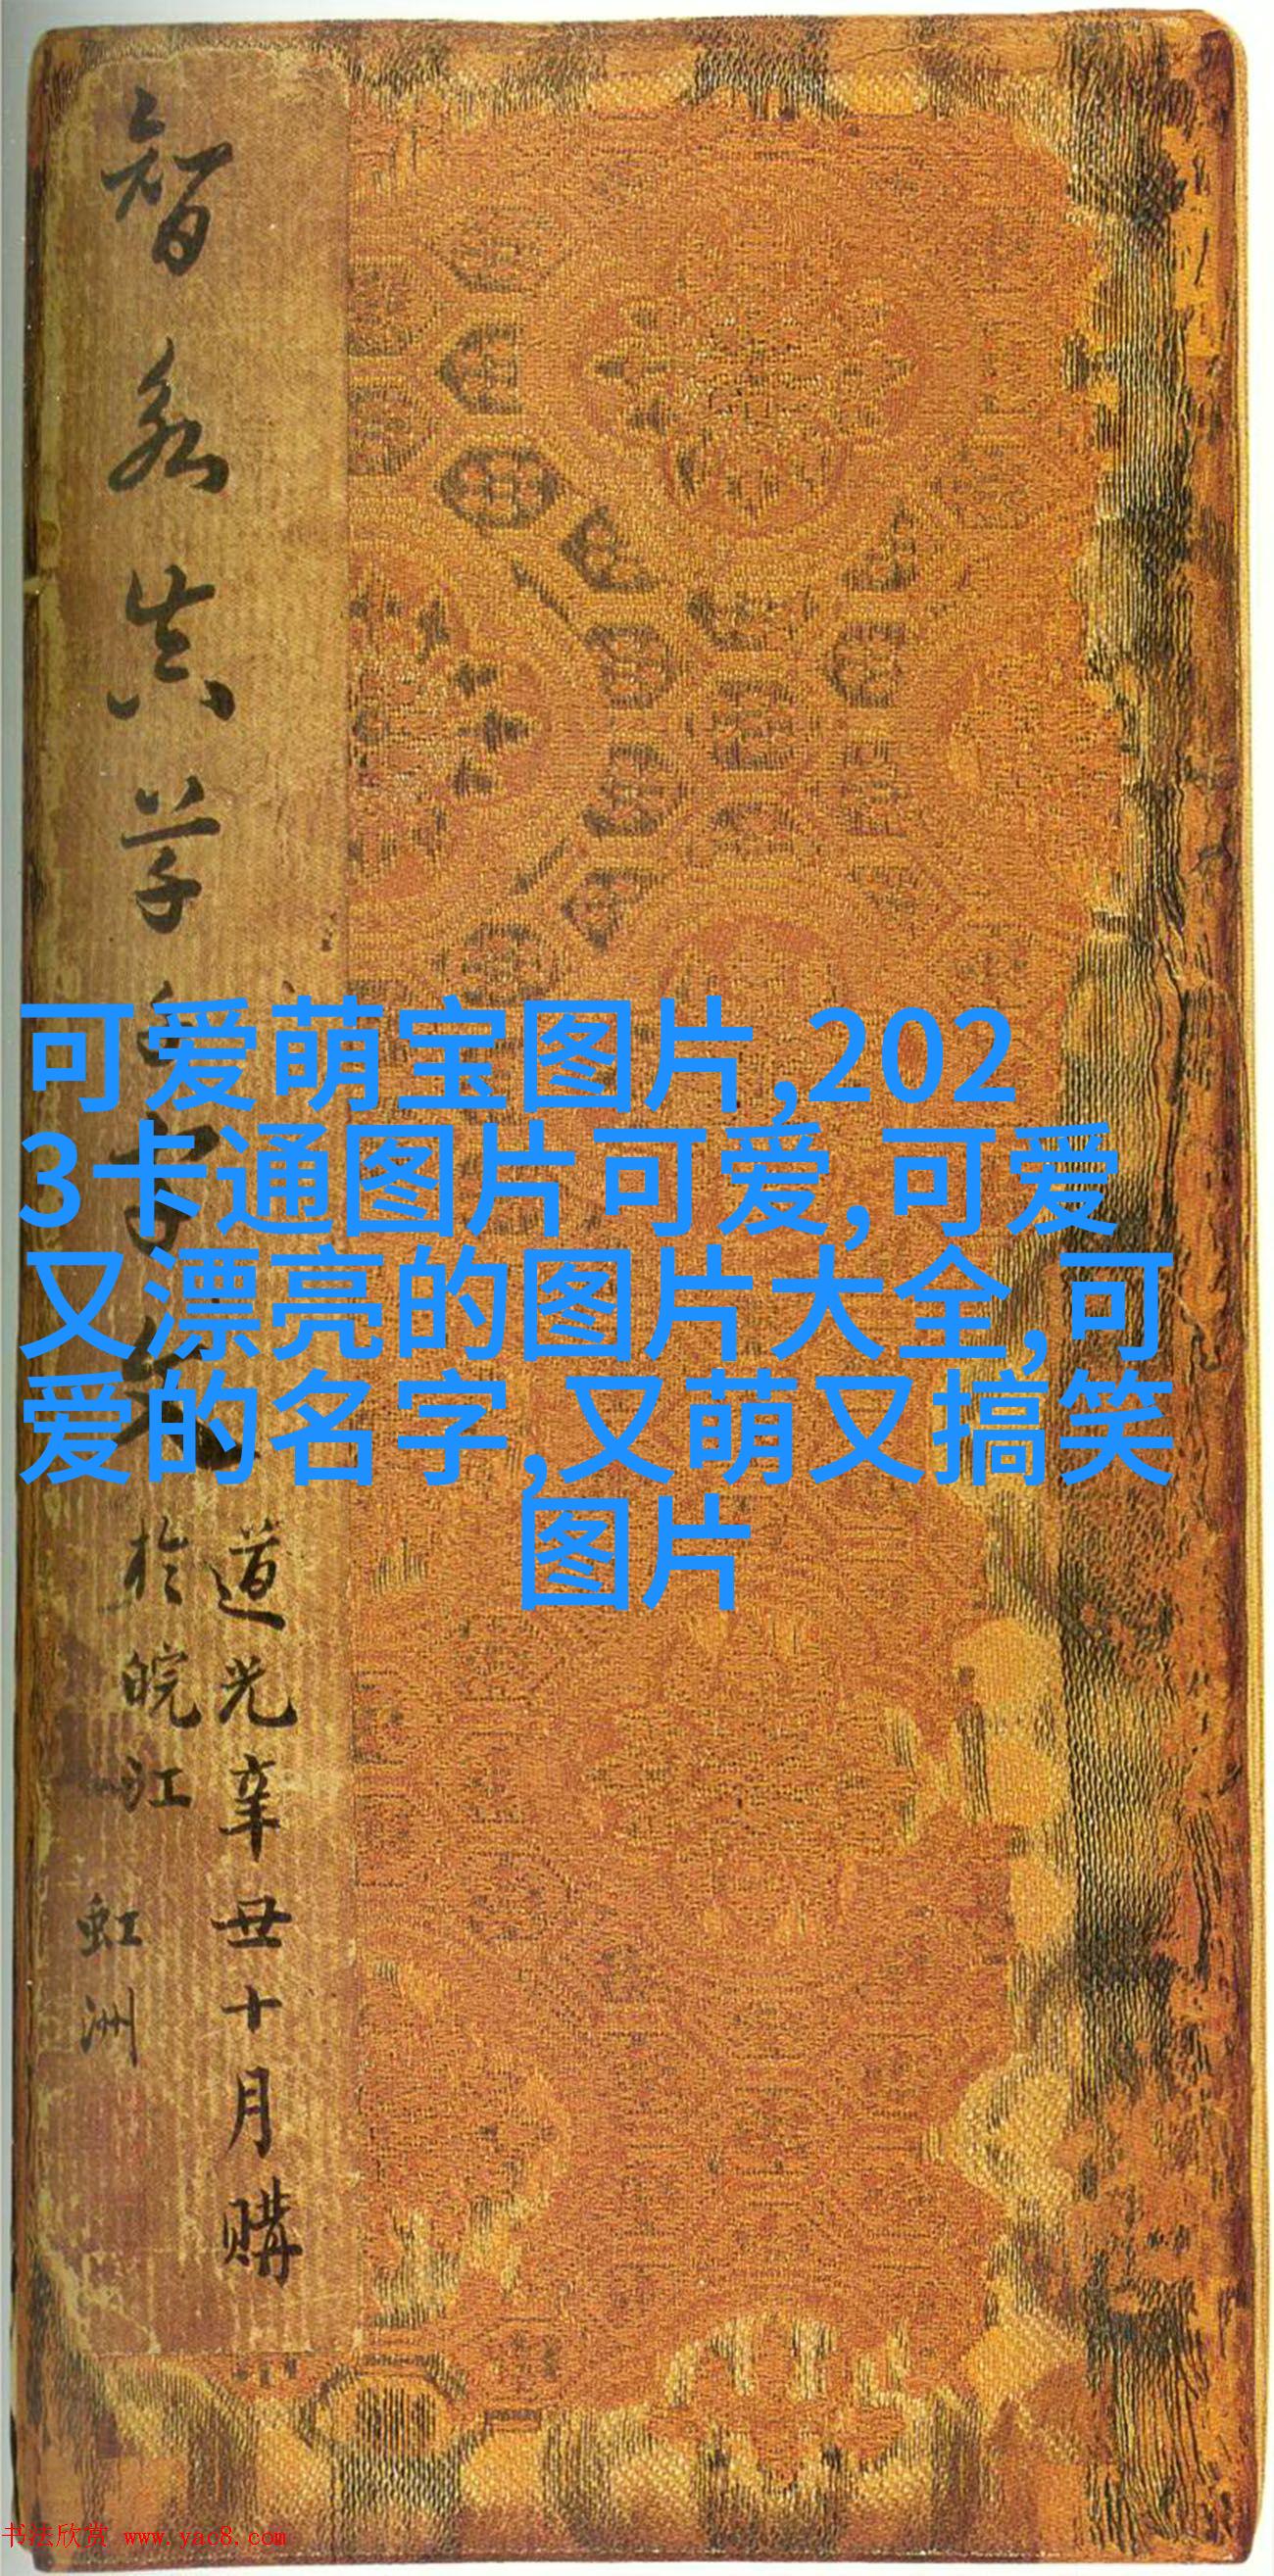 智永真草千字文
道光辛丑十月購
於皖江
虹洲
可爱萌宝图片,202
3卡通图片可爱,可爱
又漂亮的图片大全,可
爱的名字,又萌又搞笑
图片
书法欣赏 www.yac8.com